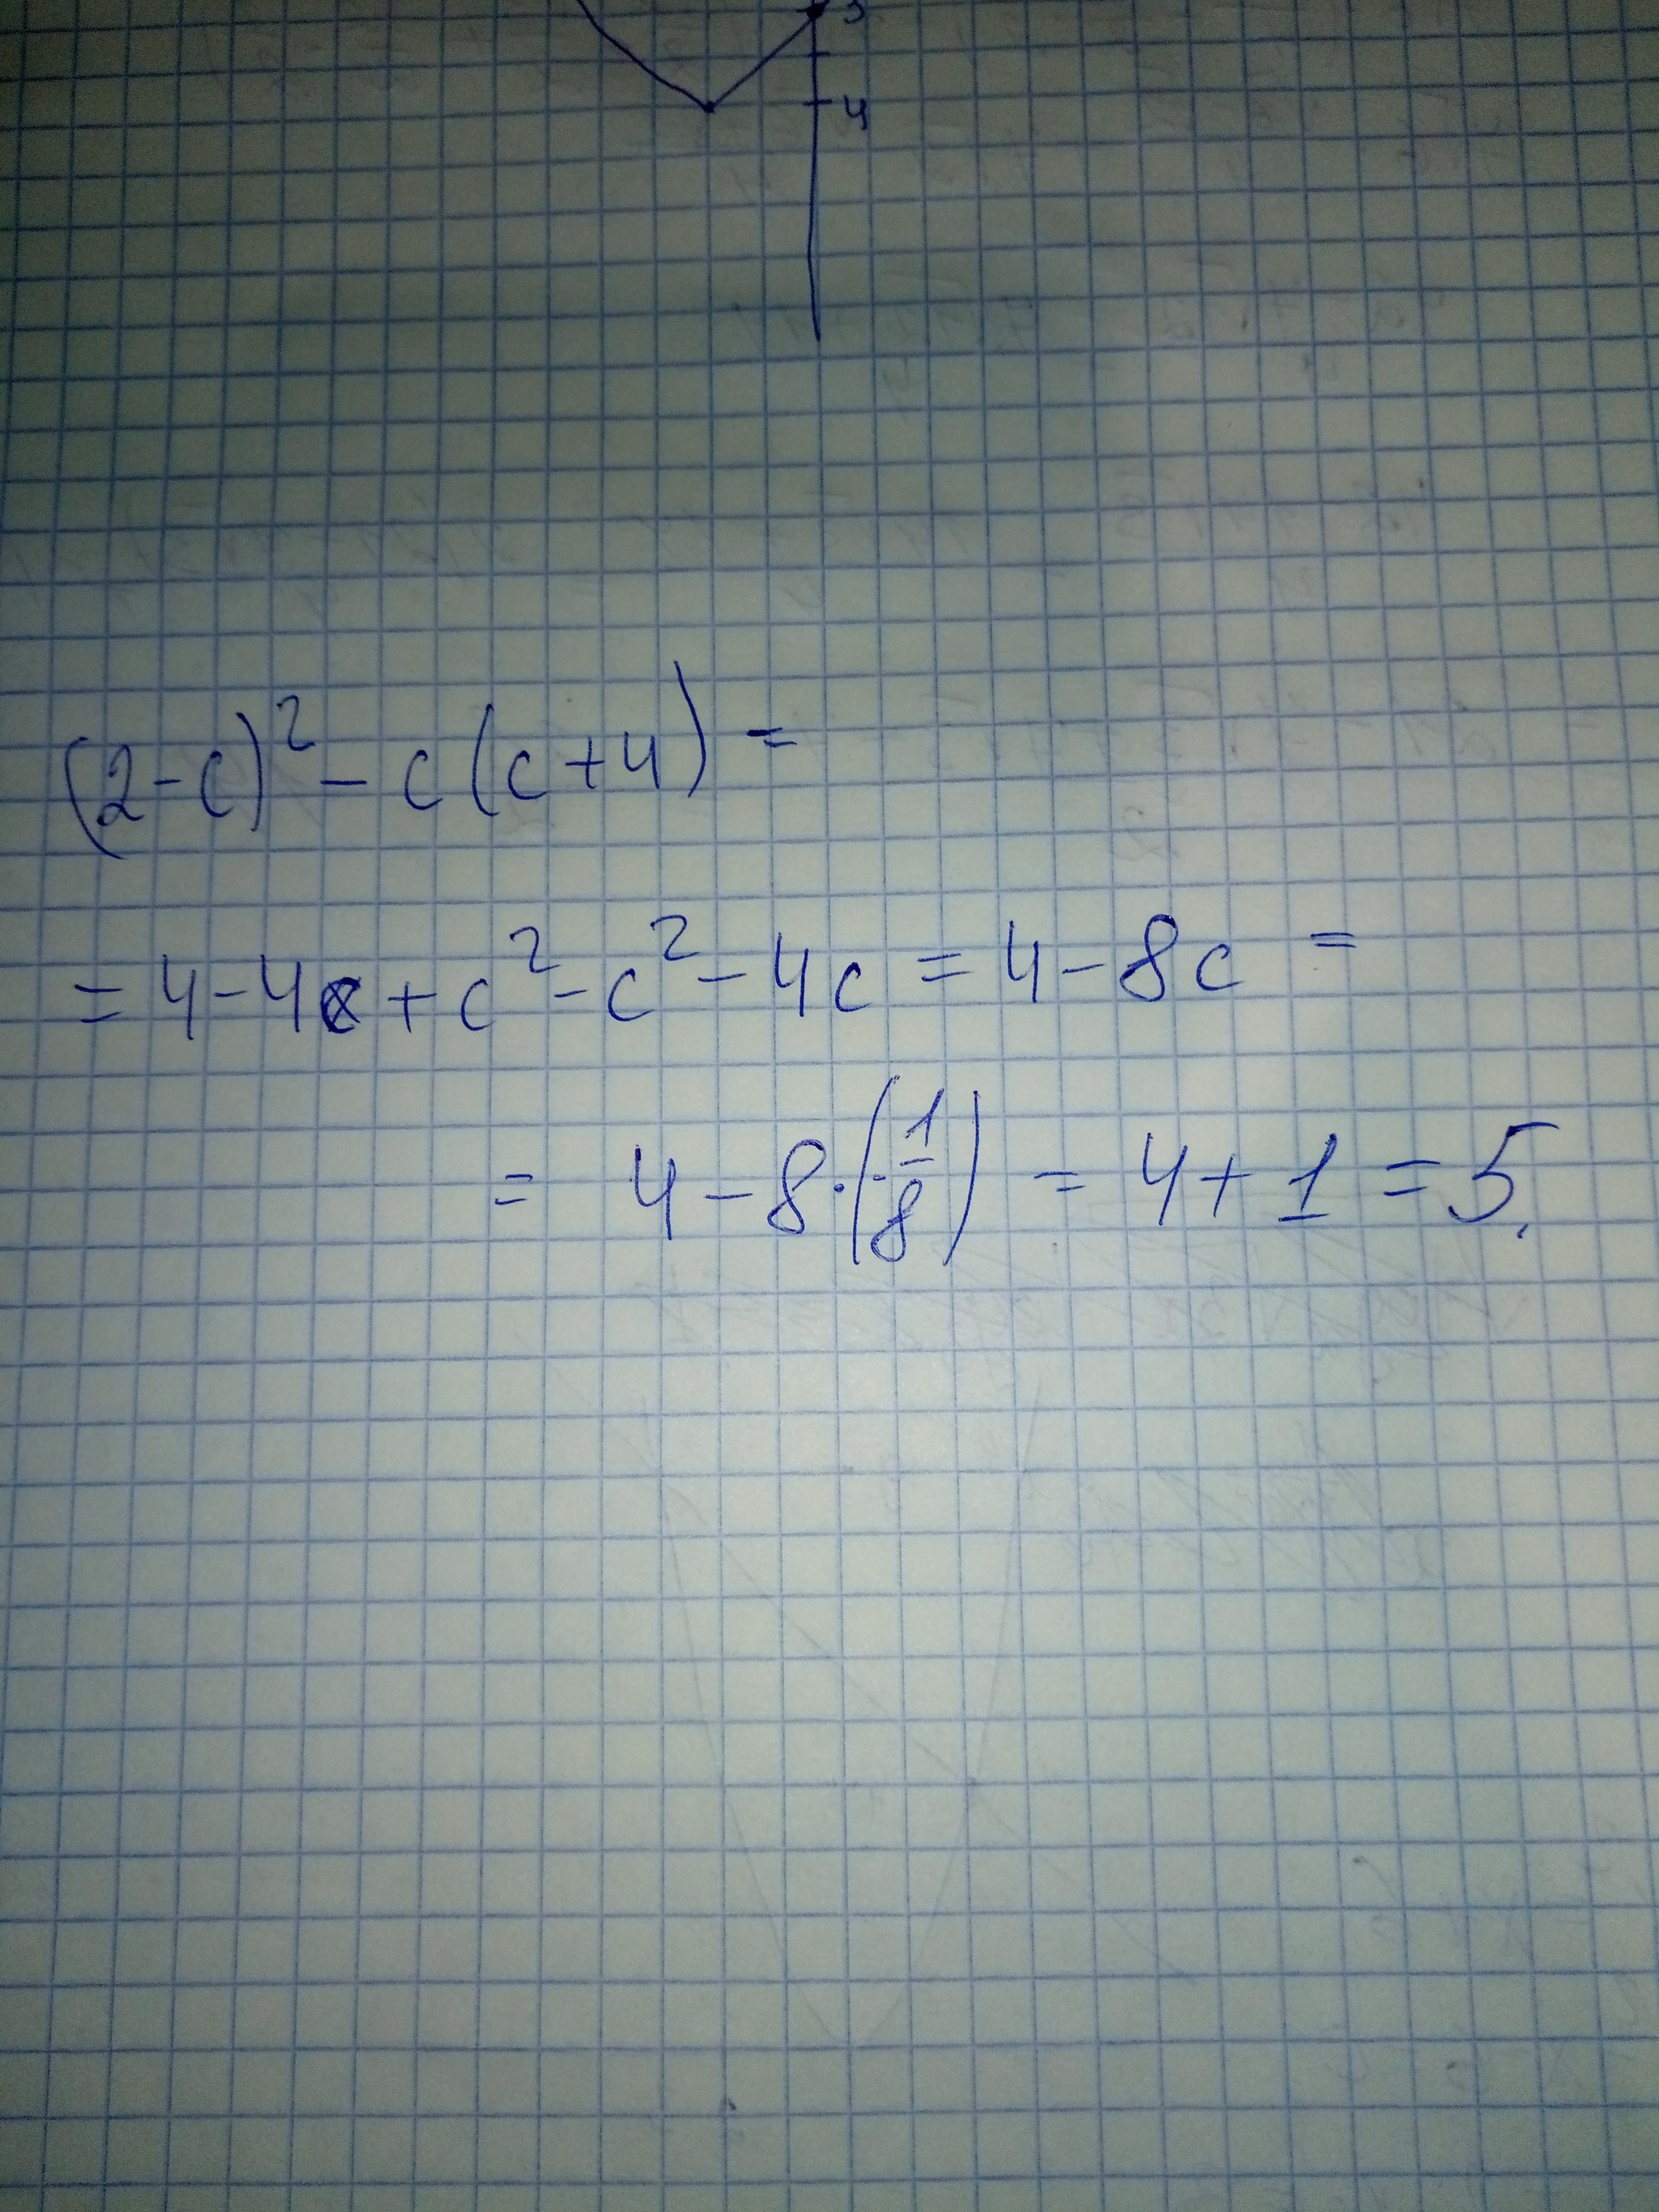 3
4
(2-c)² - c(c+4) =
= 4-4c+c²-c²-4c = 4-8c =
= 4-8·(-1/8) = 4+1 = 5.